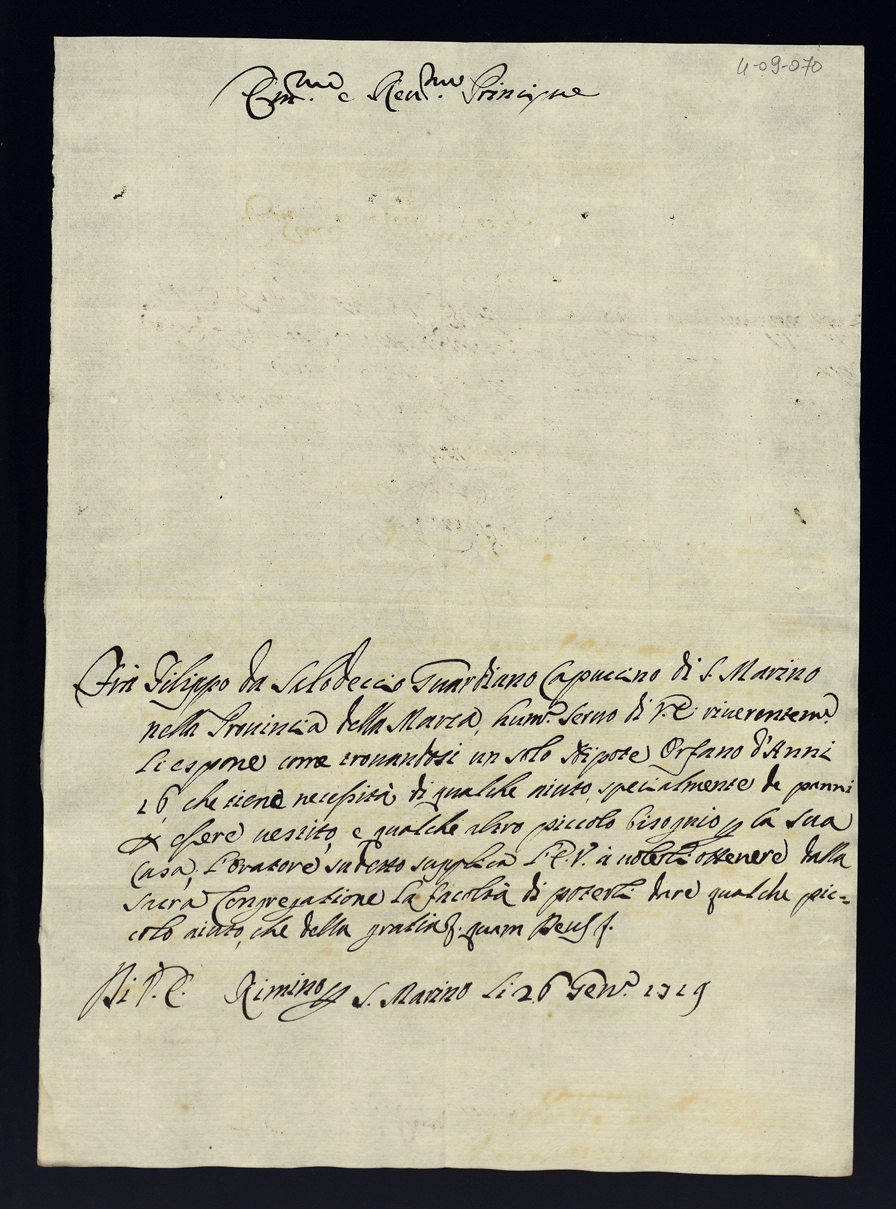 4-09-070
Em.mo e Reu.mo Principe
Frà Filippo da Selodeccio Guardiano Capuccino di S. Marino
nella Prouincia della Marca, hum.o Seruo di V. E. riuerentem.e
li espone come trouandosi un solo Nipote Orfano d'Anni
16, che tiene necessità di qualche aiuto, specialmente de panni
essere uestito, e qualche altro piccolo bisognio p la sua
Casa, l'Oratore sudetto supplica l'E. V. à uolerli ottenere dalla
Sacra Congregatione la facoltà di poterli dare qualche pic=
colo aiuto, che della gratia &. quam Deus &.
Di V. E. Rimino p S. Marino li 26 Gen.o 1719